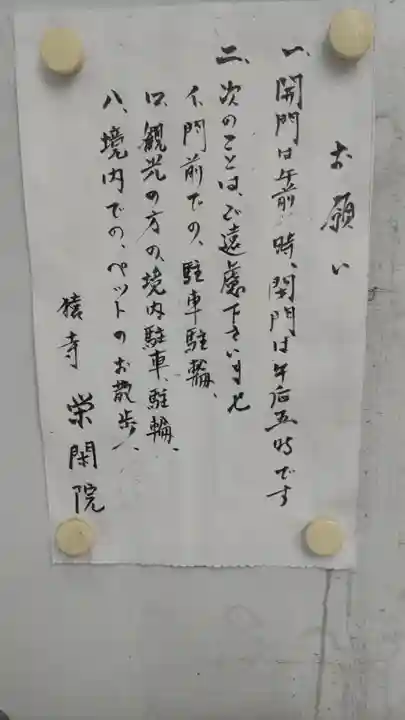 お願い
一、開門は午前 時、閉門は午后五時です
二、次のことは、ご遠慮下さいませ
イ、門前での、駐車駐輪、
ロ、観光の方の、境内駐車、駐輪、
ハ、境内での、ペットのお散歩、
猿寺 栄閑院